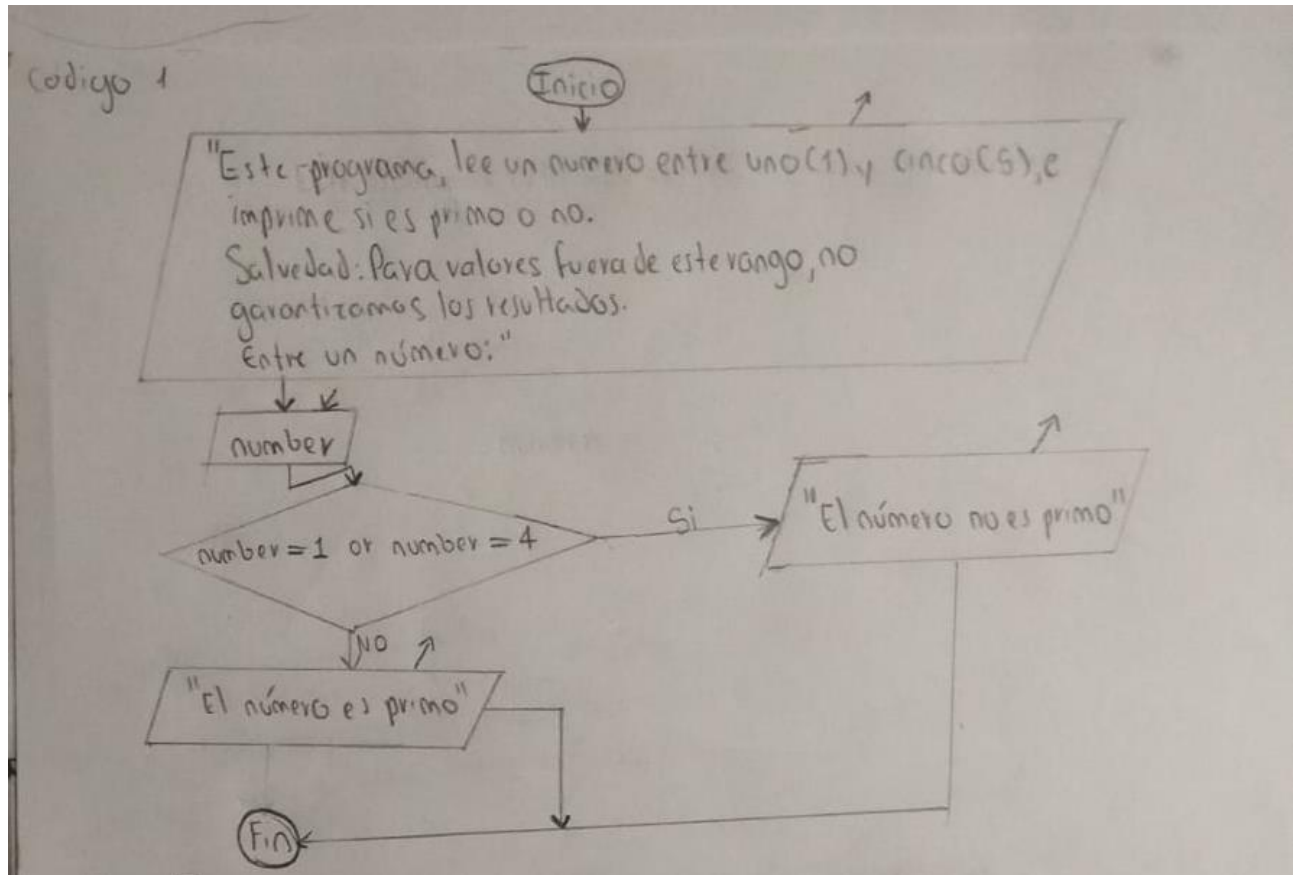 Código 1
Inicio
"Este programa, lee un numero entre uno(1) y cinco(5), e
imprime si es primo o no.
Salvedad: Para valores fuera de este rango, no
garantizamos los resultados.
Entre un número:"
number
number = 1 or number = 4
Si
"El número no es primo"
NO
"El número es primo"
Fin